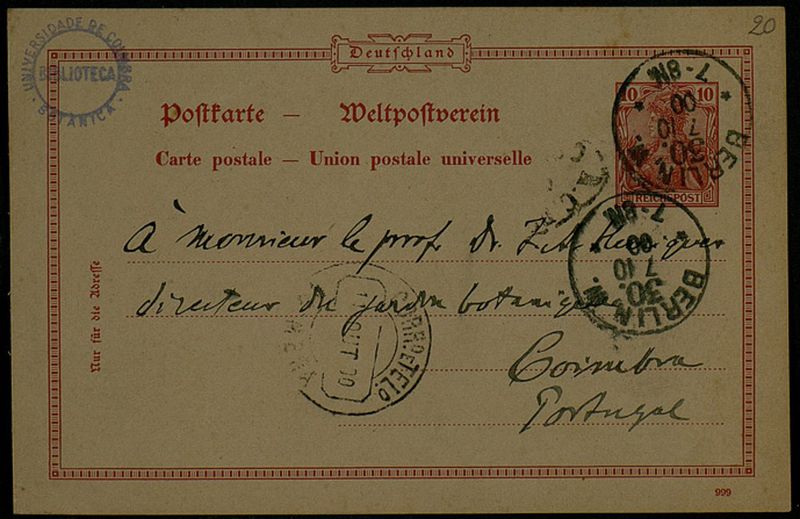 20
UNIVERSIDADE DE COIMBRA
BIBLIOTECA
BOTANICA
Deutschland
10 10
REICHSPOST
Postkarte — Weltpostverein
Carte postale — Union postale universelle
BERLIN W.
30.
7 10
00
7-8N.
BERLIN W.
30.
7 10
00
7-8N.
À Monsieur le prof. Dr.
directeur du jardin botanique
Coimbra
Portugal
Nur für die Adresse
CORRO E TELO
OUT 00
999